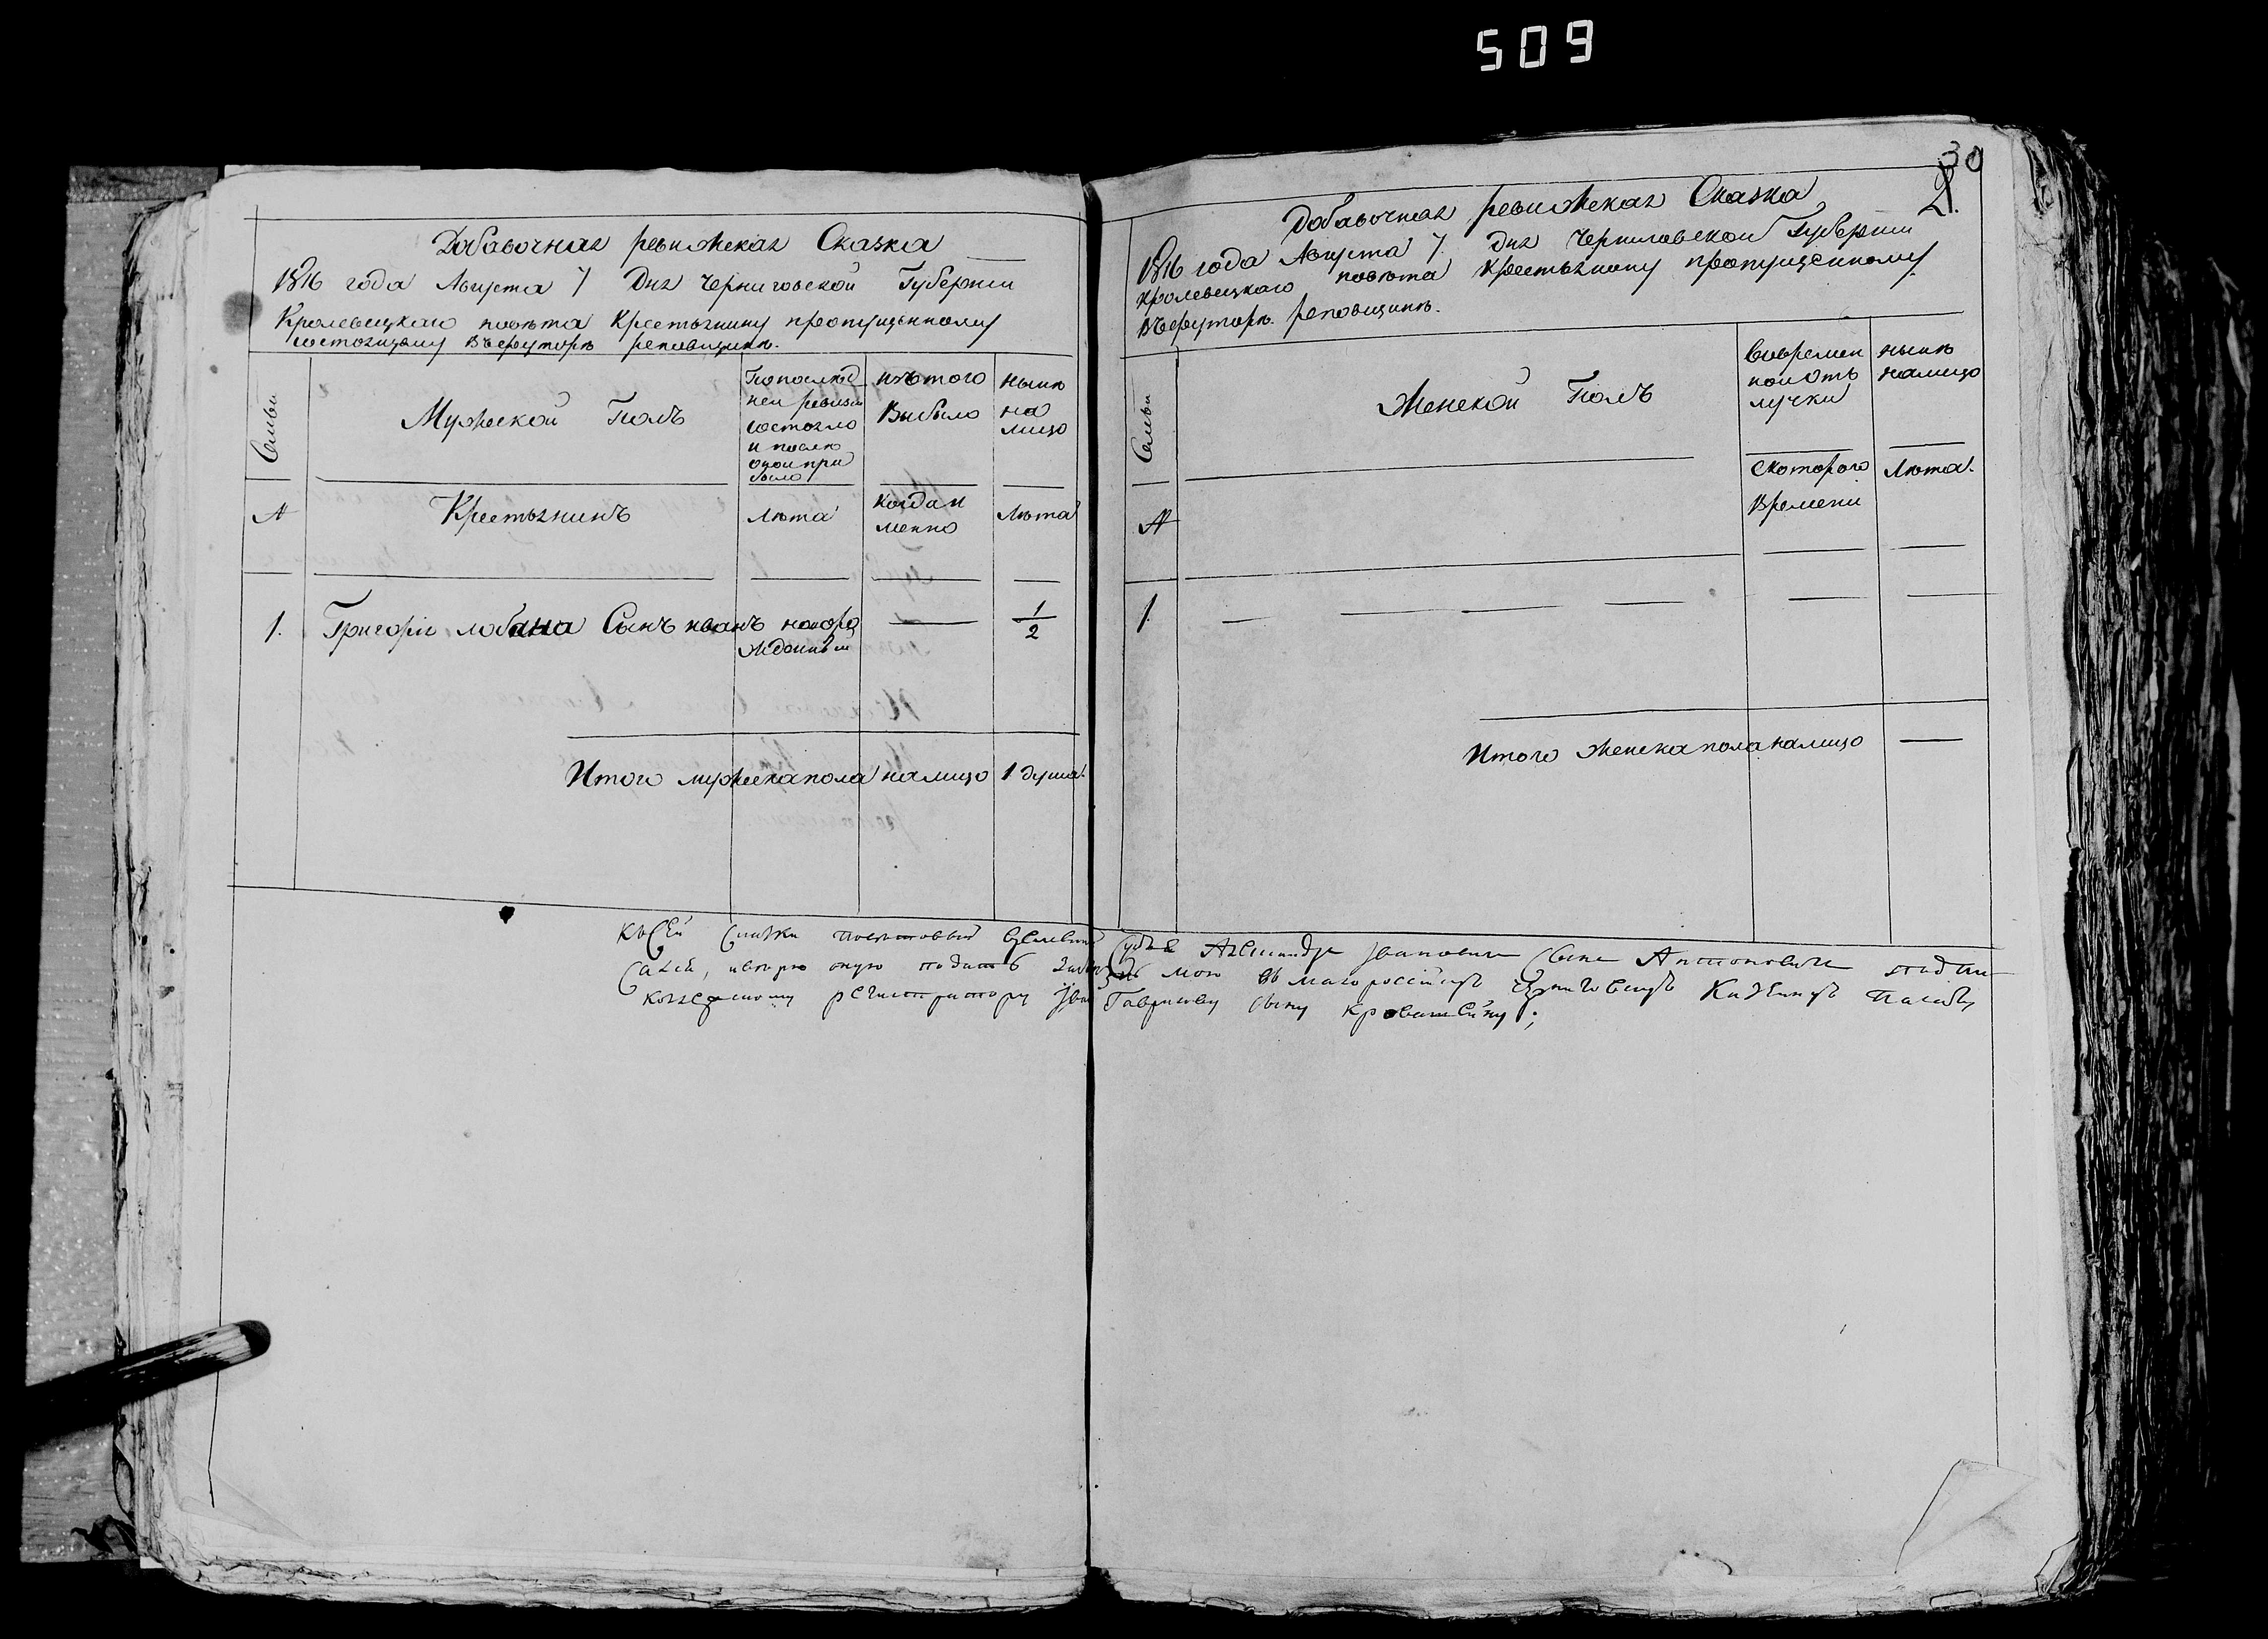 509
Добавочная ревижская Сказка
1816 года Августа 7 Дня Черниговской Губернии
Кролевецкаго повѣта Крестьянину пропущенному
состоящему Вхуторѣ реповщинѣ.
Семьи
Мужеской Полъ
Попослѣд
ней ревизіи
состояло
и послѣ
оной при
было
изътого
Выбыло
нынѣ
на
лицо
№
Крестьянинъ
Лѣта
Когда и
менно
Лѣта
1. Григорія лобана Сынъ иванъ новоро
жденный
1/2
Итого мужеска пола налицо 1 душа.
30
2.
Добавочная ревижская Сказка
1816 года Августа 7. Дня Черниговской Губернии
Кролевецкаго повѣта Крестьянину пропущенному
Вхуторѣ реповщинѣ.
Семьи
Женской Полъ
Вовремен
ной отъ
лучки
нынѣ
налицо
№
Скоторого
Времени
Лѣта.
1.
Итого женска пола налицо
Ксей скажки повѣтовый Судья Александръ Ивановичъ сынъ Антоновичъ подпи
сался, которую оную подать мою въ малороссійскую Черниговскую
колежскому регистратору Ивану Гаврилову сыну